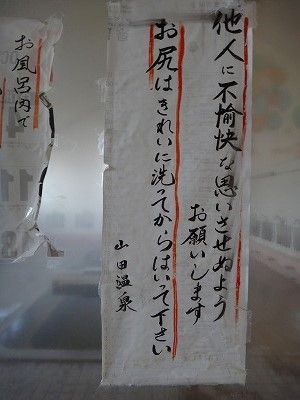 他人に不愉快な思いさせぬよう
お願いします
お尻はきれいに洗ってからはいって下さい
山田温泉
お風呂内で